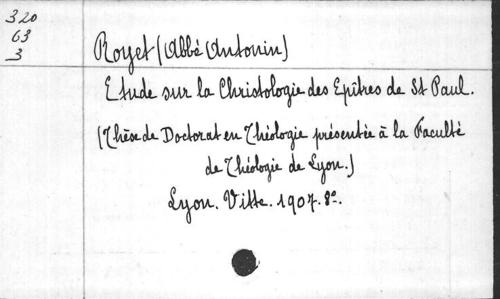 320
63
3
Royet (Abbé Antonin)
Etude sur la Christologie des Epîtres de St Paul.
(Thèse de Doctorat en Théologie présentée à la Faculté
de Théologie de Lyon.)
Lyon. Vitte. 1907. 8º.